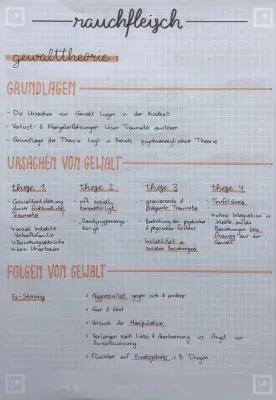 rauchfleisch
gewalttheorie
GRUNDLAGEN
- Die Ursachen von Gewalt liegen in der Kindheit
- Verlust- & Mangelerfahrungen lösen Traumata aus
- Grundlage der Theorie liegt in Freuds psychoanalytischer Theorie
URSACHEN VON GEWALT
these 1
- Gewaltentstehung
durch frühkindliche
Traumata
↳ sozial instabile
↳ Beziehungsabbrüche
↳ kein Urvertrauen
these 2
- oft sozial
benachteiligt
- Randgruppen
these 3
- gravierende &
Traumata
- Bedrohung der psychischen
& physischen Existenz
- Instabilität in
sozialen Beziehungen
these 4
- Teufelskreis
- ohne Integration in
soziale
Beziehungen kein
Ausweg aus der
Gewalt
FOLGEN VON GEWALT
Es-Störung
- Aggressivität gegen sich & andere
- Gier & Ekel
- Versuch der Manipulation
- Verlangen nach Liebe & Anerkennung vs. Angst vor
Zurückweisung
- Flüchten auf Ersatzgebiete z.B. Drogen